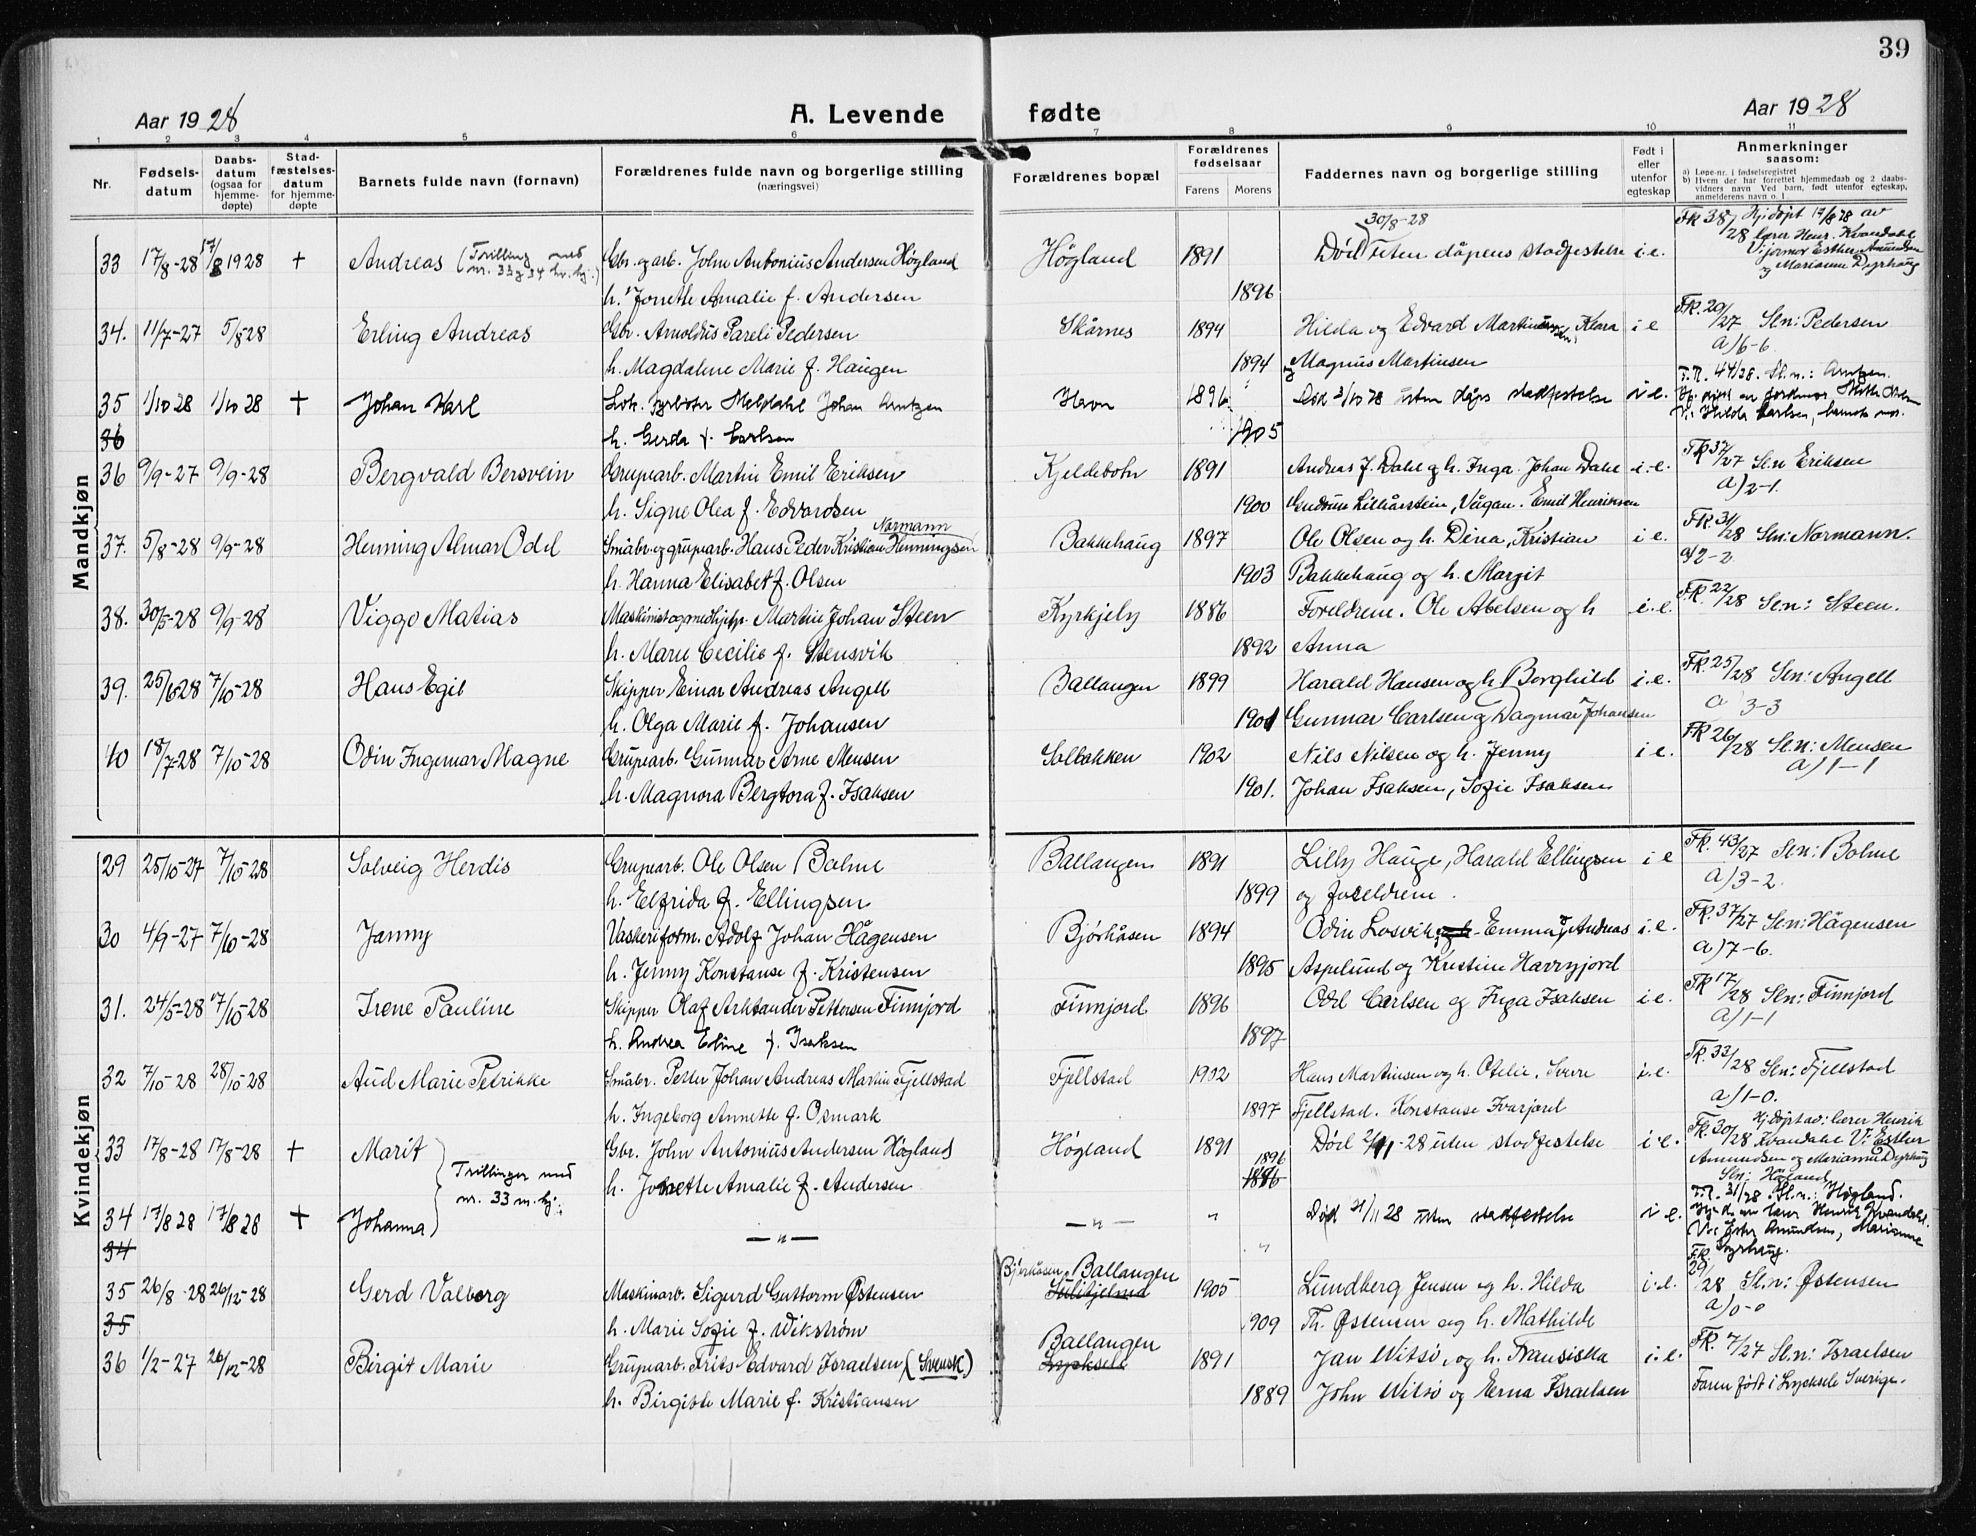 39
Aar 1928 A. Levende fødte Aar 1928
1 2 3 4 5 6 7 8 9 10 11
Nr. Fødsels-datum Daabs-datum (ogsaa for hjemme-døpte) Stad-fæstelses-datum for hjemme-døpte Barnets fulde navn (fornavn) Forældrenes fulde navn og borgerlige stilling (næringsvei) Forældrenes bopæl Forældrenes fødselsaar Farens Morens Faddernes navn og borgerlige stilling Født i eller utenfor egteskap Anmerkninger saasom:
a) Løpe-nr. i fødselsregistret
b) Hvem der har forrettet hjemmedaab og 2 daabs-vidners navn Ved barn, født utenfor egteskap, anmelderens navn o. l
Mandkjøn
33 17/8-28 17/8 1928 + Andreas (Trilling med nr. 33 og 34 kv. kj.) Gbr. og arb. John Antonius Andersen Høgland Høgland 1891 Død 30/8-28 uten dåpens stadfestelse i.e. FR 38/28 Hjdøpt 17/8 28 av lærer Henr. Kvandahl
h. Jonette Amalie f. Andersen 1896 V: jormor Esther Amundsen og Marianne Dyrhaug
34. 11/7-27 5/8 28 Erling Andreas Gbr. Arnoldus Pareli Pedersen Skårnes 1894 Hilda og Edvard Martinussen, Klara i e FR. 20/27 Sln: Pedersen
h. Magdalene Marie f. Haugen 1894 og Magnus Martinsen a) 6-6.
35 1/10 28 1/10 28 + Johan Karl Meldahl Johan Arntzen Havn 1896 Død 2/10 28 uten dåps stadfestelse i e. F.R. 44/28. Sl.n.: Arntzen.
36 h. Gerda f. Carlsen 1905 V: Hilda Carlsen,
36 9/9-27 9/9-28 Bergvald Bersvein Grupearb. Martin Emil Eriksen Kjeldebotn 1891 Andreas J. Dahl og h. Inga. Johan Dahl i.e. FR 37/27 Sln Eriksen
h. Signe Olea f. Edvardsen 1900 Gudrun Lilliårstein, Vågan. Emil Henriksen a) 2-1.
37. 5/8-28 9/9-28 Henning Almar Odel Småbr. og grupearb. Hans Peder Kristian Henningsen Normann Bakkehaug 1897 Ole Olsen og h. Dina, Kristian i e. FR. 31/28 Sln: Normann.
h. Hanna Elisabet f. Olsen 1903 Bakkehaug og h. Margit a) 2-2.
38. 30/5-28 9/9-28 Viggo Matias Martin Johan Steen Kyrkjeby 1886 Foreldrene. Ole Abelsen og h i.e. FR. 22/28 Sln: Steen.
h. Marie Cecilie f. Stensvik 1892 Anna
39. 25/6-28 7/10-28 Hans Egil Skipper Einar Andreas Angell Ballangen 1899 Harald Hansen og h Borghild i.e. FR. 25/28 Sln: Angell
h. Olga Marie f. Johansen 1901 Gunnar Carlsen og Dagmar Johansen a) 3-3
40 18/7-28 7/10-28 Odin Ingemar Magne Grupearb. Gunnar Arne Mensen Solbakken 1902 Nils Nilsen og h. Jenny i e. FR 26/28 Sln: Mensen
h. Magnora Bergtora f. Isaksen 1901. Johan Isaksen, Sofie Isaksen a) 1-1
Kvindekjøn
29 25/10-27 7/10-28 Solveig Herdis Grupearb. Ole Olsen Bolme Ballangen 1891 Lilly Hauge, Harald Ellingsen i e FR. 43/27 Sln: Bolme
h. Elfrida f. Ellingsen 1899 og foreldrene. a) 3-2.
30 4/9-27 7/10-28 Jenny Vaskeriform. Adolf Johan Hågensen Bjørkåsen 1894 Odin Losvik, Emma og Andreas i.e. FR. 37/27 Sln: Hågensen
h. Jenny Konstanse f. Kristensen 1895 Aspelund og Kristine Havnfjord a) 7-6.
31. 24/5-28 7/10-28 Irene Pauline Skipper Olaf Arktander Pettersen Finnjord Finnjord 1896 Odd Carlsen og Inga Isaksen i e. FR 17/28 Sln: Finnjord
h. Andrea Eline f. Isaksen 1897 a) 1-1
32 7/10-28 28/10-28 Aud Marie Petrikke Småbr. Petter Johan Andreas Martin Fjellstad Fjellstad 1902 Hans Martinsen og h. Otelie, Sverre i.e. FR. 33/28 Sln: Fjellstad
h. Ingeborg Annette f. Osmark 1897 Fjellstad. Konstanse Ivarjord a) 1-0.
33 17/8-28 17/8-28 + Marit Trillinger med nr. 33 m. kj. Gbr. John Antonius Andersen Høgland Høgland 1891 Død 2/11-28 uten stadfestelse i e. FR. 30/28 Hjdøpt av: lærer Henrik Kvandahl V: Esther
h. Jonette Amalie f. Andersen 1896 1886 Amundsen og Marianne Dyrhaug Sln: Høgland
34 17/8 28 17/8 28 + Johanna —"— —"— " Død 21/11 28 uten stadfestelse i e. F.R. 31/28 Sl.n.: Høgland. lærer Henrik Kvandahl.
34 " V: Ester Amundsen, Marianne Dyrhaug.
35 26/8-28 26/12-28 Gerd Valborg Maskinarb. Sigurd Guttorm Østensen Bjørkåsen, Ballangen Sulitjelma 1905 Lundberg Jensen og h. Hilda i.e. FR 29/28 Sln: Østensen
35 h. Marie Sofie f. Wikstrøm 1909 Th. Østensen og h. Mathilde a) 0-0
36 1/2-27 26/12-28 Birgit Marie Grupearb. Frits Edvard Israelsen (Svensk.) Ballangen Lycksele 1891 Jan Witsø, og h. Fransiska i.e. FR. 7/27 Sln: Israelsen
h. Birgitte Marie f. Kristiansen 1889 John Witsø og Erna Israelsen Faren født i Lycksele Sverige.